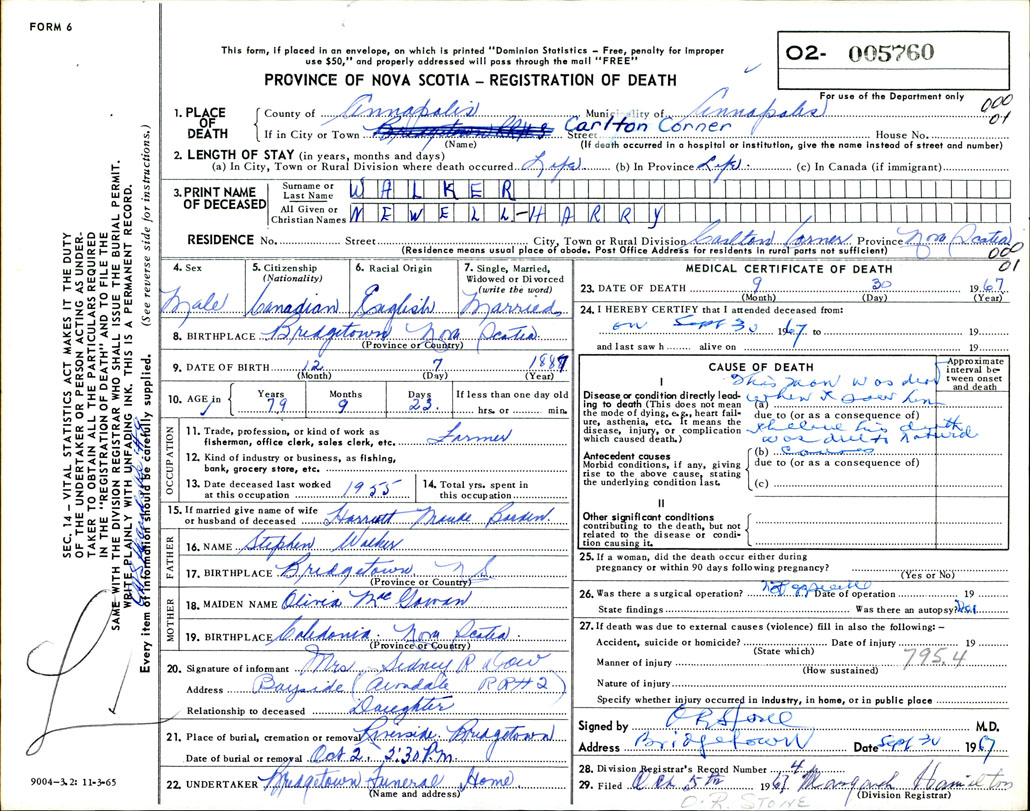 FORM 6
This form, if placed in an envelope, on which is printed "Dominion Statistics – Free, penalty for improper
use $50," and properly addressed will pass through the mail "FREE"
O2- 005760
PROVINCE OF NOVA SCOTIA – REGISTRATION OF DEATH
For use of the Department only
000
01
1. PLACE OF DEATH
County of Annapolis Municipality of Annapolis
If in City or Town Bridgetown RR# 3 Street Carlton Corner House No.
(Name) (If death occurred in a hospital or institution, give the name instead of street and number)
2. LENGTH OF STAY (in years, months and days)
(a) In City, Town or Rural Division where death occurred Life (b) In Province Life (c) In Canada (if immigrant)
3. PRINT NAME OF DECEASED
Surname or Last Name WALKER
All Given or Christian Names NEWELL-HARRY
RESIDENCE No. Street City, Town or Rural Division Carlton Corner Province Nova Scotia
(Residence means usual place of abode. Post Office Address for residents in rural parts not sufficient)
000
01
4. Sex Male
5. Citizenship (Nationality) Canadian
6. Racial Origin English
7. Single, Married, Widowed or Divorced (write the word) Married
8. BIRTHPLACE Bridgetown Nova Scotia
(Province or Country)
9. DATE OF BIRTH 12 7 1887
(Month) (Day) (Year)
10. AGE in Years Months Days If less than one day old
79 9 23 hrs. or min.
OCCUPATION
11. Trade, profession, or kind of work as
fisherman, office clerk, sales clerk, etc. Farmer
12. Kind of industry or business, as fishing,
bank, grocery store, etc.
13. Date deceased last worked
at this occupation 1955
14. Total yrs. spent in
this occupation
15. If married give name of wife
or husband of deceased Harriett Maude Borden
FATHER
16. NAME Stephen Walker
17. BIRTHPLACE Bridgetown N S
(Province or Country)
MOTHER
18. MAIDEN NAME Olivia McGowan
19. BIRTHPLACE Caledonia Nova Scotia
(Province or Country)
20. Signature of informant Mrs Sidney R
Address Bayside (Avondale RR#2)
Relationship to deceased Daughter
21. Place of burial, cremation or removal Riverside Bridgetown
Date of burial or removal Oct 2. 2:30 P.m.
22. UNDERTAKER Bridgetown Funeral Home
(Name and address)
MEDICAL CERTIFICATE OF DEATH
23. DATE OF DEATH 9 30 1967
(Month) (Day) (Year)
24. I HEREBY CERTIFY that I attended deceased from:
on Sept 30 1967 to 19
and last saw h alive on 19
CAUSE OF DEATH
Approximate interval between onset and death
I
This man was dead
Disease or condition directly leading to death (This does not mean the mode of dying, e.g., heart failure, asthenia, etc. It means the disease, injury, or complication which caused death.)
(a) when I saw him
due to (or as a consequence of)
I believe his death
was due to natural
Antecedent causes
Morbid conditions, if any, giving rise to the above cause, stating the underlying condition last.
(b) causes
due to (or as a consequence of)
(c)
II
Other significant conditions
contributing to the death, but not related to the disease or condition causing it.
25. If a woman, did the death occur either during
pregnancy or within 90 days following pregnancy?
(Yes or No)
26. Was there a surgical operation? Date of operation 19
State findings Was there an autopsy?
27. If death was due to external causes (violence) fill in also the following: –
Accident, suicide or homicide? Date of injury 19
(State which)
Manner of injury 795.4
(How sustained)
Nature of injury
Specify whether injury occurred in industry, in home, or in public place
Signed by O R Stone M.D.
Address Bridgetown Date Sept 30 1967
28. Division Registrar's Record Number 4
29. Filed Oct 5th 1967 Margaret Hamilton
(Division Registrar)
O.R. STONE
SEC. 14 – VITAL STATISTICS ACT MAKES IT THE DUTY
OF THE UNDERTAKER OR PERSON ACTING AS UNDER-
TAKER TO OBTAIN ALL THE PARTICULARS REQUIRED
IN THE "REGISTRATION OF DEATH" AND TO FILE THE
SAME WITH THE DIVISION REGISTRAR WHO SHALL ISSUE THE BURIAL PERMIT.
WRITE PLAINLY WITH UNFADING INK. THIS IS A PERMANENT RECORD.
Every item of information should be carefully supplied. (See reverse side for instructions.)
9004-3.2: 11-3-65